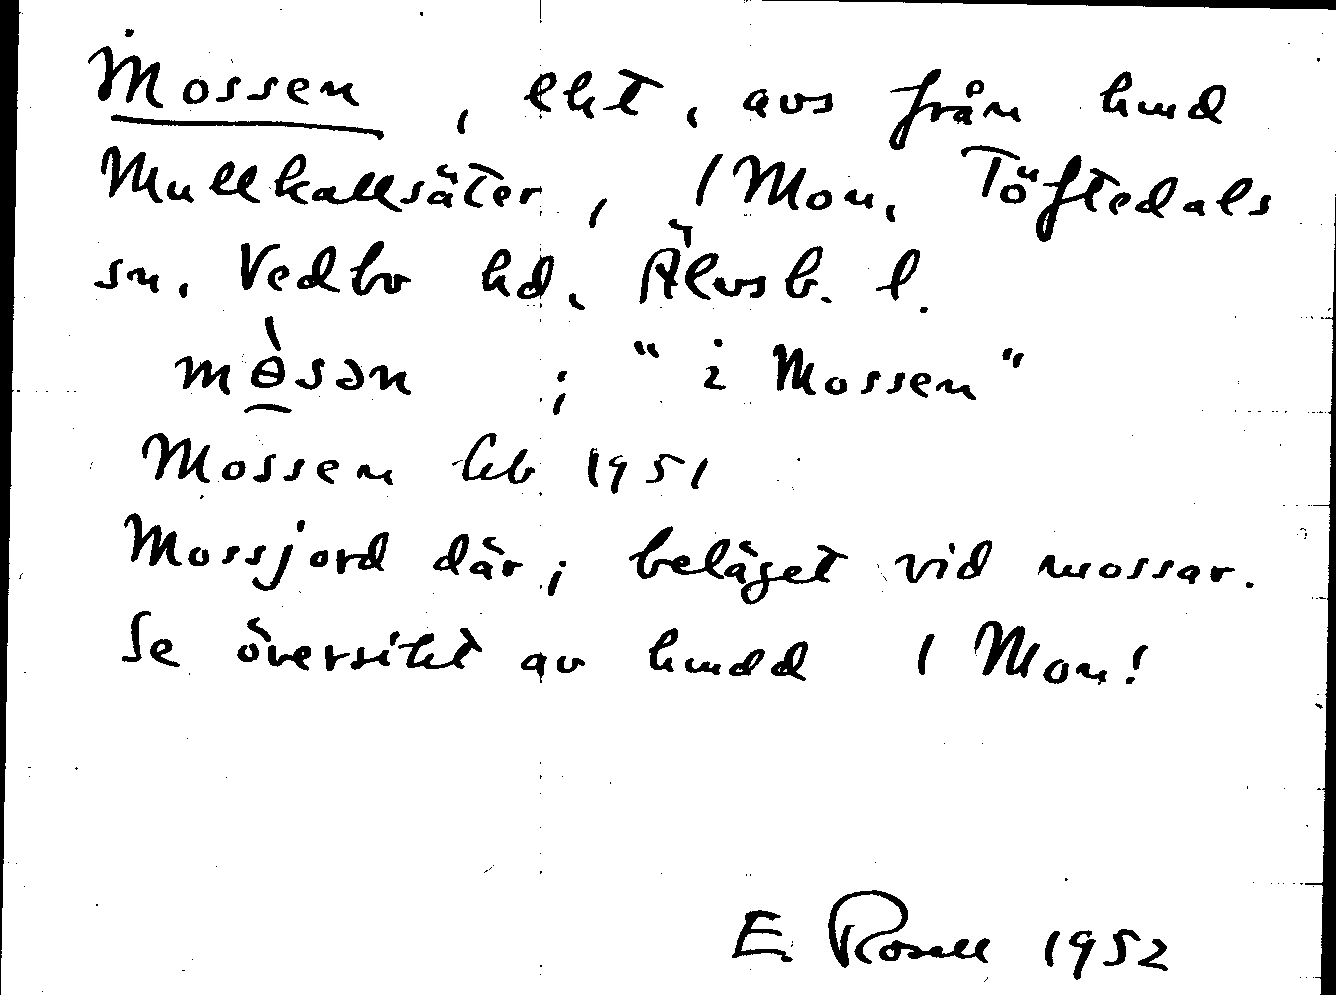 Mossen, lht, avs från hmd
Mullkallsäter, 1 Mon, Töftedals
sn. Vedbo hd. Älvsb. l.
mɵ̀sən ; "i Mossen"
Mossen lbb 1951
Mossjord där; beläget vid mossar.
Se översikt av hmdd 1 Mon!
E. Rosell 1952